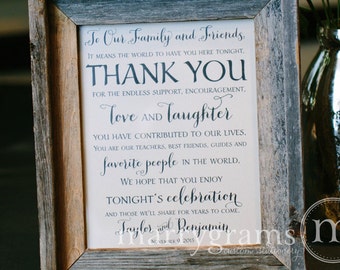 To Our Family and Friends,
It means the world to have you here tonight.
THANK YOU
for the endless support, encouragement,
love and laughter
you have contributed to our lives.
You are our teachers, best friends, guides and
favorite people in the world.
We hope that you enjoy
tonight's celebration
and those we'll share for years to come.
Taylor and Benjamin
marrygrams
custom stationery
m